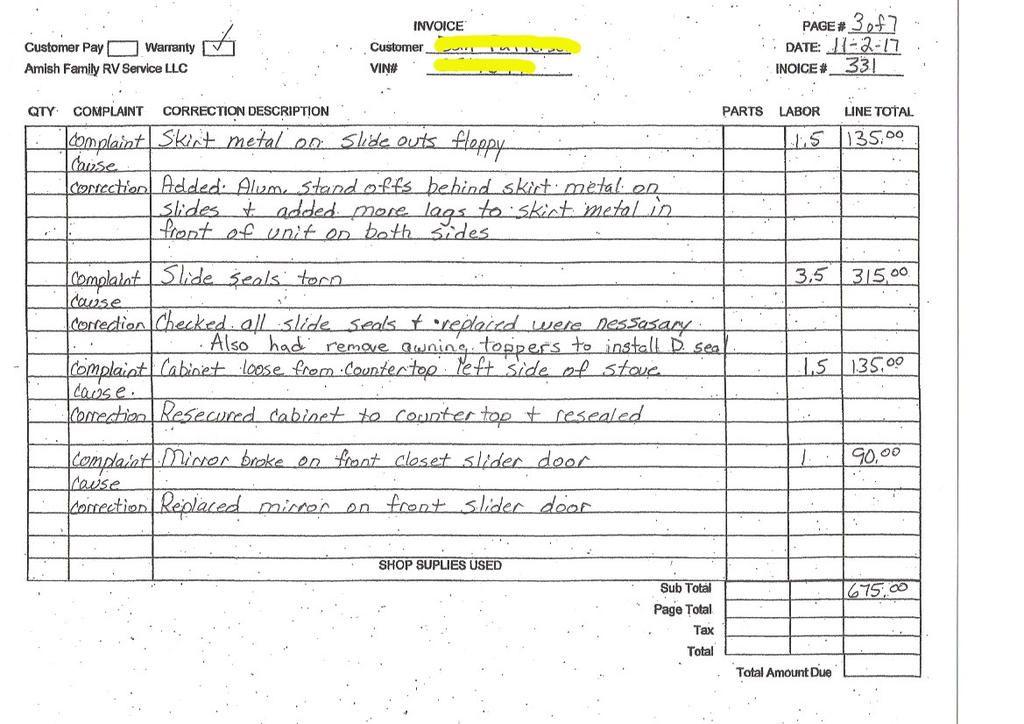 INVOICE
PAGE# 3 of 7
Customer Pay Warranty ✓
Customer
DATE: 11-2-17
Amish Family RV Service LLC
VIN#
INOICE# 331
QTY COMPLAINT CORRECTION DESCRIPTION PARTS LABOR LINE TOTAL
Complaint Skirt metal on Slide outs floppy 1.5 135.00
Cause
Correction Added Alum. stand offs behind skirt metal on
slides + added more lags to skirt metal in
front of unit on both sides
Complaint Slide seals torn 3.5 315.00
Cause
Correction Checked all slide seals + replaced were nessasary
Also had remove awning toppers to install D seal
Complaint Cabinet loose from countertop left side of stove 1.5 135.00
Cause
Correction Resecured cabinet to counter top + resealed
Complaint Mirror broke on front closet slider door 1 90.00
Cause
Correction Replaced mirror on front slider door
SHOP SUPLIES USED
Sub Total 675.00
Page Total
Tax
Total
Total Amount Due